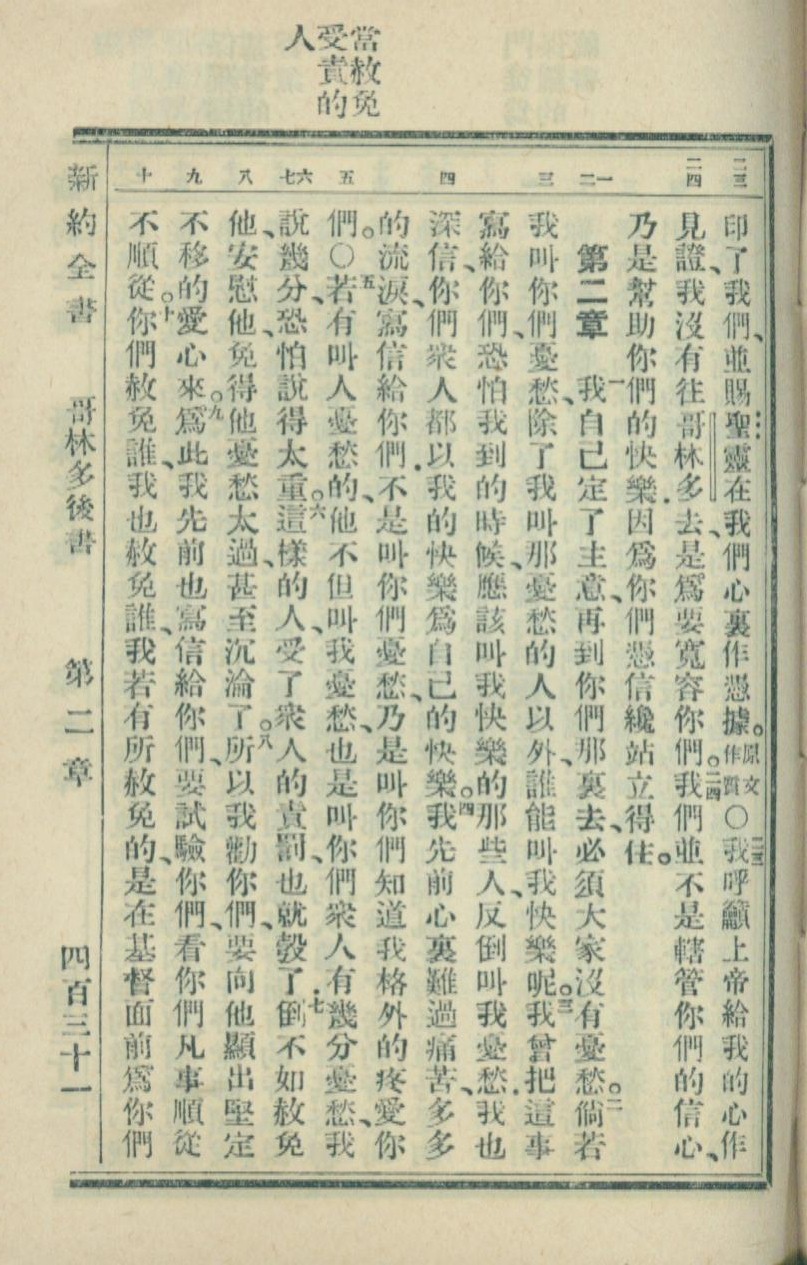 當赦免
受責的
人
二三
二四
一二
三
四
五
六七
八
九
十
印了我們、並賜聖靈在我們心裏作憑據。原文作質〇二三我呼籲上帝給我的心作
見證、我沒有往哥林多去、是爲要寬容你們。二四我們並不是轄管你們的信心、
乃是幫助你們的快樂.因爲你們憑信纔站立得住。
第二章 一我自己定了主意、再到你們那裏去、必須大家沒有憂愁。二倘若
我叫你們憂愁、除了我叫那憂愁的人以外、誰能叫我快樂呢。三我曾把這事
寫給你們、恐怕我到的時候、應該叫我快樂的那些人、反倒叫我憂愁.我也
深信、你們衆人都以我的快樂爲自己的快樂。四我先前心裏難過痛苦、多多
的流淚、寫信給你們.不是叫你們憂愁、乃是叫你們知道我格外的疼愛你
們。〇五若有叫人憂愁的、他不但叫我憂愁、也是叫你們衆人有幾分憂愁、我
說幾分、恐怕說得太重。六這樣的人、受了衆人的責罰、也就彀了.七倒不如赦免
他、安慰他、免得他憂愁太過、甚至沉淪了。八所以我勸你們、要向他顯出堅定
不移的愛心來。九爲此我先前也寫信給你們、要試驗你們、看你們凡事順從
不順從。十你們赦免誰、我也赦免誰、我若有所赦免的、是在基督面前爲你們
新約全書 哥林多後書 第二章 四百三十一